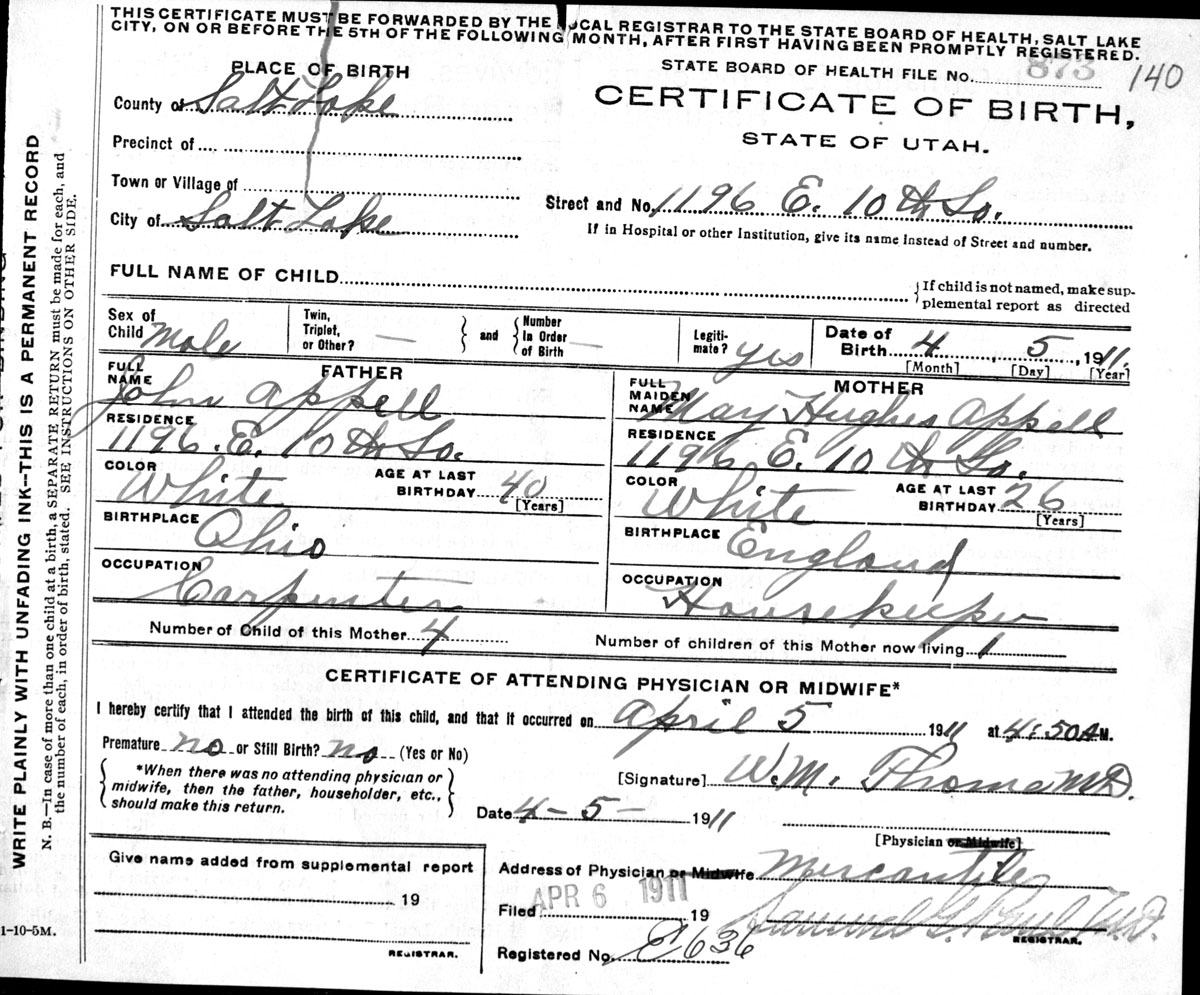 THIS CERTIFICATE MUST BE FORWARDED BY THE LOCAL REGISTRAR TO THE STATE BOARD OF HEALTH, SALT LAKE
CITY, ON OR BEFORE THE 5TH OF THE FOLLOWING MONTH, AFTER FIRST HAVING BEEN PROMPTLY REGISTERED.
PLACE OF BIRTH
STATE BOARD OF HEALTH FILE No. 873 140
County of Salt Lake
CERTIFICATE OF BIRTH,
STATE OF UTAH.
Precinct of
Town or Village of
Street and No. 1196 E. 10 th So.
City of Salt Lake
If in Hospital or other Institution, give its name Instead of Street and number.
FULL NAME OF CHILD
{If child is not named, make sup-
plemental report as directed
Sex of Child Male
Twin, Triplet, or Other? —
and
Number In Order of Birth —
Legiti-mate? yes
Date of Birth 4, 5, 1911.
[Month] [Day] [Year]
FATHER
FULL NAME John Appell
RESIDENCE 1196. E. 10 th So.
COLOR White AGE AT LAST BIRTHDAY 40 [Years]
BIRTHPLACE Ohio
OCCUPATION Carpenter
MOTHER
FULL MAIDEN NAME May Hughes Appell
RESIDENCE 1196 E. 10 th So.
COLOR White AGE AT LAST BIRTHDAY 26 [Years]
BIRTHPLACE England
OCCUPATION Housekeeper
Number of Child of this Mother 4 Number of children of this Mother now living 1
CERTIFICATE OF ATTENDING PHYSICIAN OR MIDWIFE*
I hereby certify that I attended the birth of this child, and that it occurred on April 5 1911 at 4:50 A M.
Premature no or Still Birth? no (Yes or No)
*When there was no attending physician or
midwife, then the father, householder, etc.,
should make this return.
[Signature] W. M. Thoma M.D.
Date 4 – 5 – 1911
[Physician or Midwife]
Give name added from supplemental report
19
REGISTRAR.
Address of Physician or Midwife Mercantile
APR 6 1911
Filed 19
REGISTRAR.
Registered No. C636
WRITE PLAINLY WITH UNFADING INK--THIS IS A PERMANENT RECORD
N. B.—In case of more than one child at a birth, a SEPARATE RETURN must be made for each, and
the number of each, in order of birth, stated. SEE INSTRUCTIONS ON OTHER SIDE.
1-10-5M.